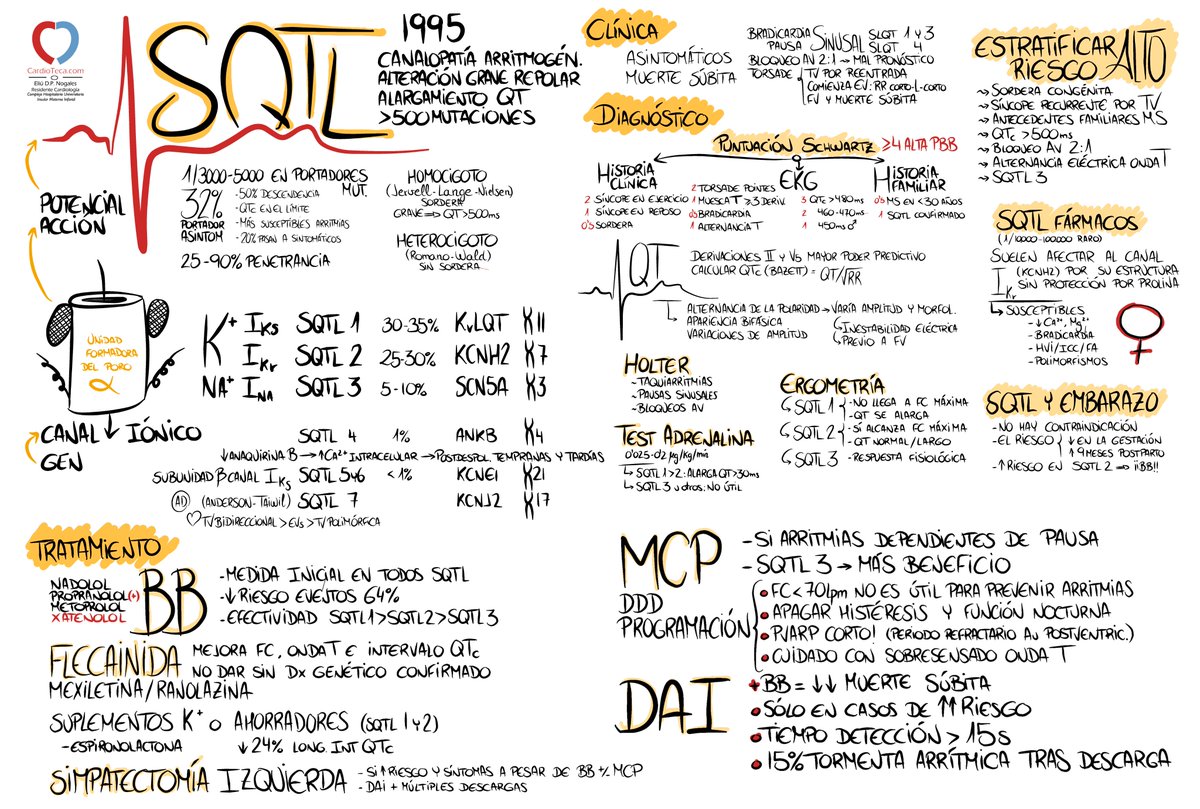 CardioTeca.com
Elio D.P. Nogales
Residente Cardiología
Complejo Hospitalario Universitario
Insular Materno Infantil
SQTL
1995
CANALOPATÍA ARRITMOGÉN.
ALTERACIÓN GRAVE REPOLAR
ALARGAMIENTO QT
>500 MUTACIONES
POTENCIAL
ACCIÓN
1/3000-5000 EN PORTADORES
MUT.
32%
PORTADOR
ASINTOM
-50% DESCENDENCIA
-QTC EN EL LÍMITE
-MÁS SUSCEPTIBLES ARRITMIAS
-20% PASAN A SINTOMÁTICOS
25-90% PENETRANCIA
HOMOCIGOTO
(Jerwell-Lange-Nielsen)
SORDERA
GRAVE => QT>500ms
HETEROCIGOTO
(Romano-Wald)
SIN SORDERA
UNIDAD
FORMADORA
DEL PORO
α
K+ IKs SQTL 1 30-35% KvLQT X11
IKr SQTL 2 25-30% KCNH2 X7
NA+ INA SQTL 3 5-10% SCN5A X3
CANAL IÓNICO
GEN
SQTL 4 1% ANKB X4
↓ANAQUIRINA B → ↑Ca2+ INTRACELULAR → POSTDESPOL. TEMPRANAS Y TARDÍAS
SUBUNIDAD β CANAL IKs SQTL 5Y6 <1% KCNE1 X21
AD (ANDERSON-TAIWIL) SQTL 7 KCNJ2 X17
♡ TV BIDIRECCIONAL > EVs > TV POLIMÓRFICA
TRATAMIENTO
NADOLOL
PROPRANOLOL(+)
METOPROLOL
XATENOLOL
BB
-MEDIDA INICIAL EN TODOS SQTL
-↓ RIESGO EVENTOS 64%
-EFECTIVIDAD SQTL1>SQTL2>SQTL3
FLECAINIDA MEJORA FC, ONDA T E INTERVALO QTc
NO DAR SIN Dx GENÉTICO CONFIRMADO
MEXILETINA/RANOLAZINA
SUPLEMENTOS K+ O AHORRADORES (SQTL 1 y 2)
-ESPIRONOLACTONA ↓24% LONG INT QTc
SIMPATECTOMÍA IZQUIERDA
-SI ↑RIESGO Y SÍNTOMAS A PESAR DE BB +/- MCP
-DAI + MÚLTIPLES DESCARGAS
CLÍNICA
ASINTOMÁTICOS
MUERTE SÚBITA
BRADICARDIA
PAUSA SINUSAL SLQT 1 Y 3
SLQT 4
BLOQUEO AV 2:1 → MAL PRONÓSTICO
TORSADE TV POR REENTRADA
COMIENZA EV: RR CORTO-L-CORTO
FV Y MUERTE SÚBITA
DIAGNÓSTICO
PUNTUACIÓN SCHWARTZ ≥4 ALTA PBB
HISTORIA
CLÍNICA
2 SÍNCOPE EN EJERCICIO
1 SÍNCOPE EN REPOSO
0'5 SORDERA
EKG
2 TORSADE POINTES
1 MUESCA T ≥3 DERIV.
0'5 BRADICARDIA
1 ALTERNANCIA T
3 QTc >480ms
2 460-470ms
1 450ms ♂
HISTORIA
FAMILIAR
0'5 MS EN <30 AÑOS
1 SQTL CONFIRMADO
QT
DERIVACIONES II Y V5 MAYOR PODER PREDICTIVO
CALCULAR QTC (BAZETT) = QT/√RR
ALTERNANCIA DE LA POLARIDAD → VARÍA AMPLITUD Y MORFOL.
APARIENCIA BIFÁSICA
VARIACIONES DE AMPLITUD
INESTABILIDAD ELÉCTRICA
PREVIO A FV
HOLTER
-TAQUIARRITMIAS
-PAUSAS SINUSALES
-BLOQUEOS AV
TEST ADRENALINA
0'025-0'2 µg/kg/min
SQTL 1>2: ALARGA QT>30ms
SQTL 3 u otros: NO ÚTIL
ERGOMETRÍA
SQTL 1 -NO LLEGA A FC MÁXIMA
-QT SE ALARGA
SQTL 2 -SÍ ALCANZA FC MÁXIMA
-QT NORMAL/LARGO
SQTL 3 -RESPUESTA FISIOLÓGICA
ESTRATIFICAR
RIESGO ALTO
SORDERA CONGÉNITA
SÍNCOPE RECURRENTE POR TV
ANTECEDENTES FAMILIARES MS
QTc >500ms
BLOQUEO AV 2:1
ALTERNANCIA ELÉCTRICA ONDA T
SQTL 3
SQTL FÁRMACOS
(1/10000-100000 RARO)
SUELEN AFECTAR AL CANAL
IKr (KCNH2) POR SU ESTRUCTURA
SIN PROTECCIÓN POR PROLINA
SUSCEPTIBLES
-↓Ca2+, Mg2+
-BRADICARDIA
-HVI/ICC/FA
-POLIMORFISMOS
SQTL Y EMBARAZO
-NO HAY CONTRAINDICACIÓN
-EL RIESGO ↓ EN LA GESTACIÓN
↑ 9 MESES POSTPARTO
-↑ RIESGO EN SQTL 2 => ¡¡BB!!
MCP
DDD
PROGRAMACIÓN
-SI ARRITMIAS DEPENDIENTES DE PAUSA
-SQTL 3 → MÁS BENEFICIO
FC<70lpm NO ES ÚTIL PARA PREVENIR ARRITMIAS
APAGAR HISTÉRESIS Y FUNCIÓN NOCTURNA
PVARP CORTO! (PERIODO REFRACTARIO AU POSTVENTRIC.)
CUIDADO CON SOBRESENSADO ONDA T
DAI
+BB = ↓↓ MUERTE SÚBITA
SÓLO EN CASOS DE ↑↑ RIESGO
TIEMPO DETECCIÓN > 15s
15% TORMENTA ARRÍTMICA TRAS DESCARGA